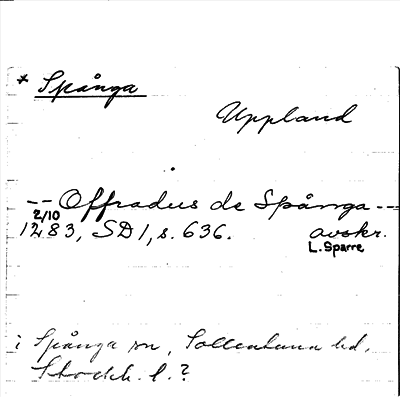 * Spånga
Uppland
-- Offradus de Spånga --
2/10
1283, SD 1, s. 636. avskr.
L. Sparre
i Spånga sn, Sollentuna hd,
Stockh. l.?